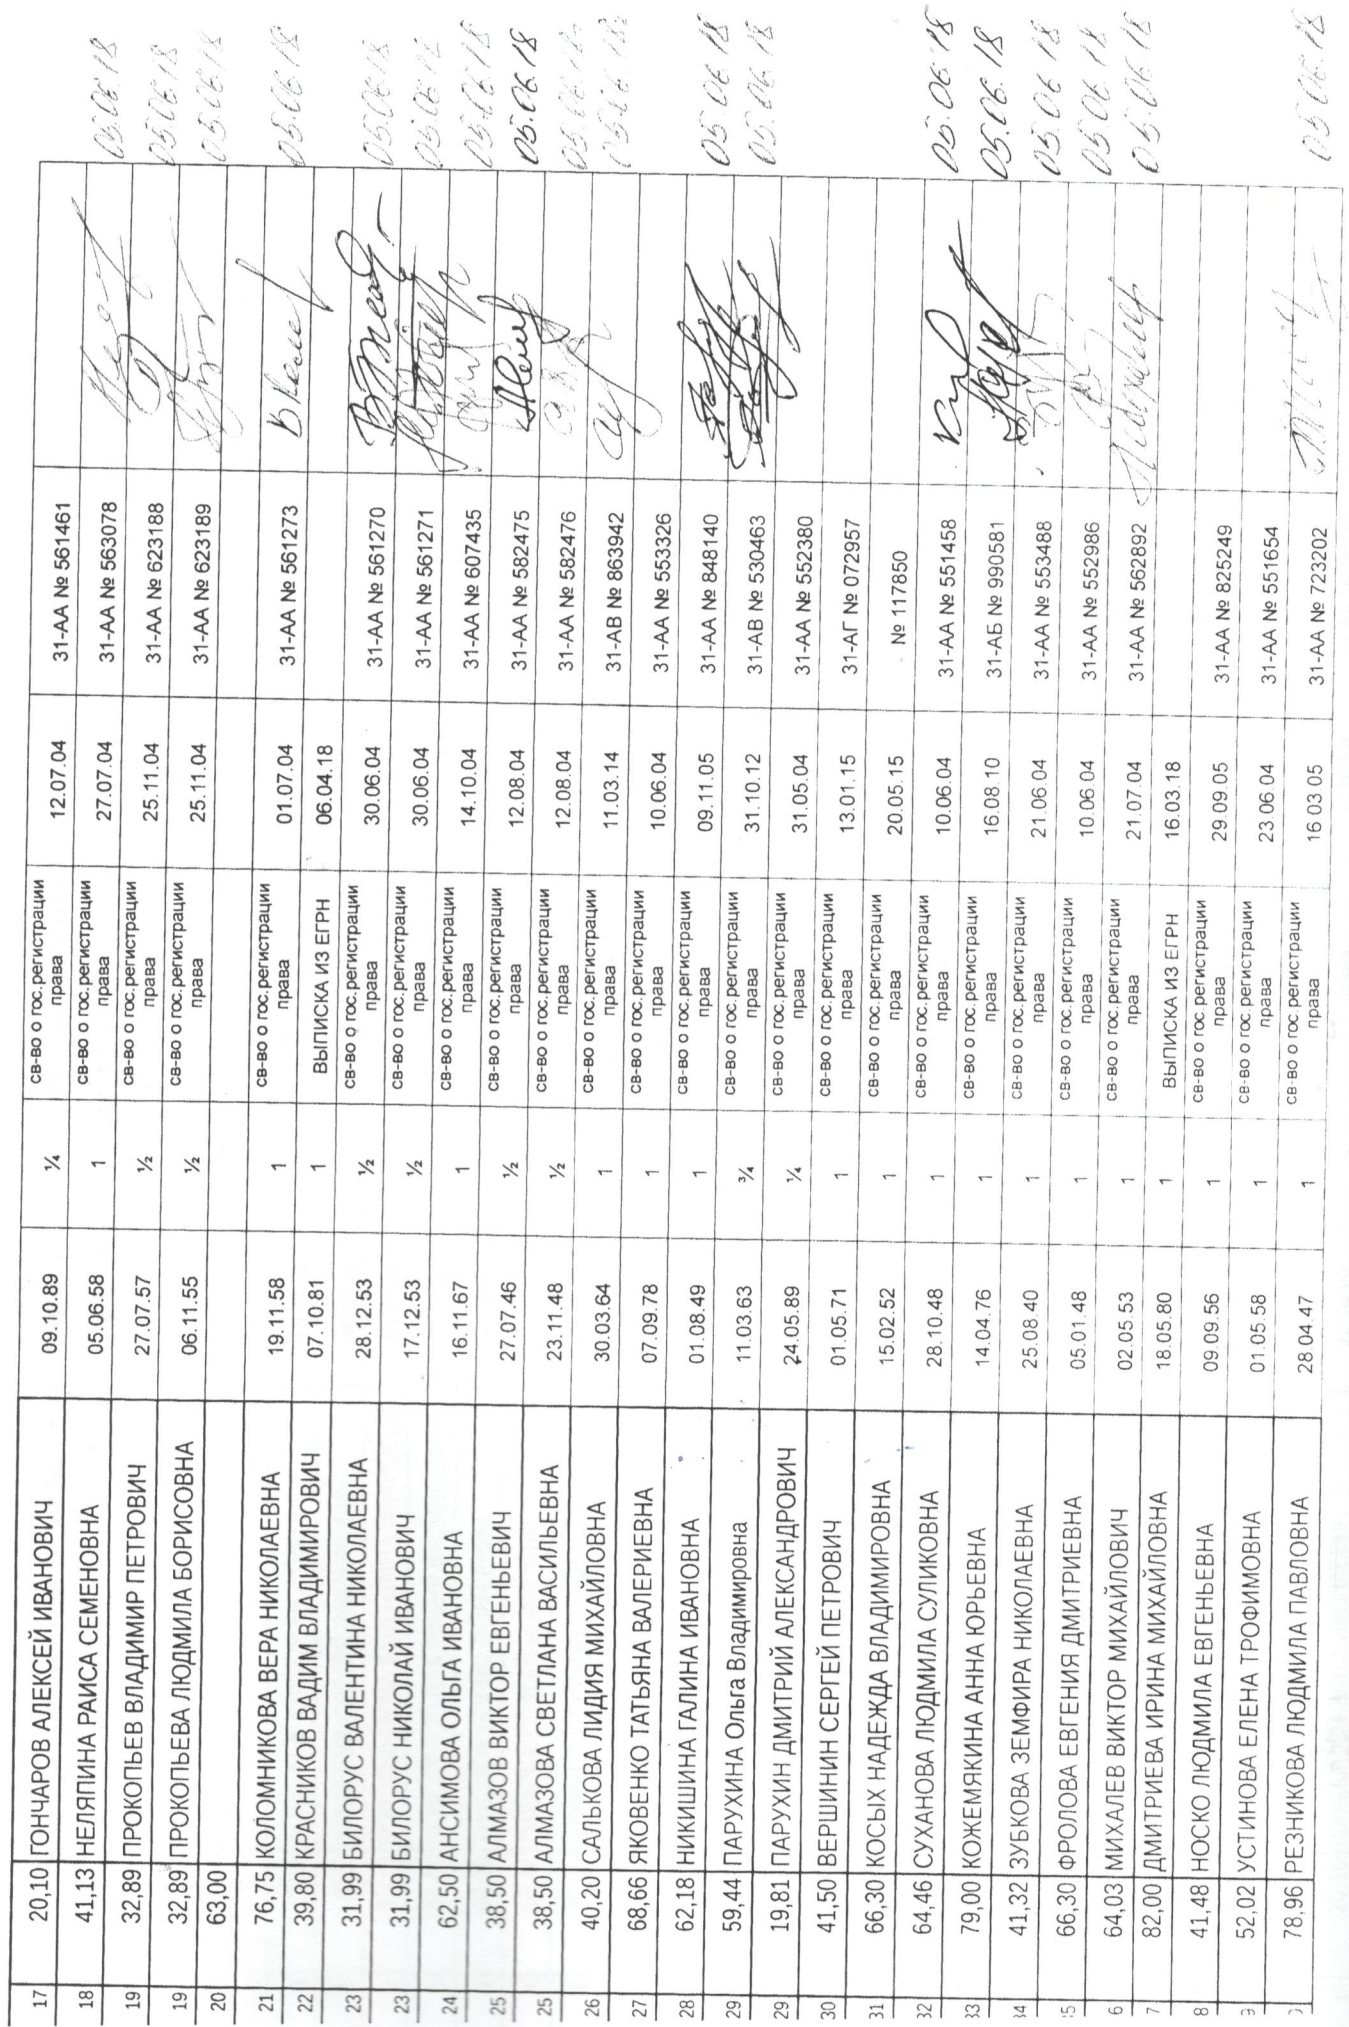 17 20,10 ГОНЧАРОВ АЛЕКСЕЙ ИВАНОВИЧ 09.10.89 ¼ св-во о гос.регистрации права 12.07.04 31-АА № 561461
18 41,13 НЕЛЯПИНА РАИСА СЕМЕНОВНА 05.06.58 1 св-во о гос.регистрации права 27.07.04 31-АА № 563078 05.06.18
19 32,89 ПРОКОПЬЕВ ВЛАДИМИР ПЕТРОВИЧ 27.07.57 ½ св-во о гос.регистрации права 25.11.04 31-АА № 623188 05.06.18
19 32,89 ПРОКОПЬЕВА ЛЮДМИЛА БОРИСОВНА 06.11.55 ½ св-во о гос.регистрации права 25.11.04 31-АА № 623189 05.06.18
20 63,00
21 76,75 КОЛОМНИКОВА ВЕРА НИКОЛАЕВНА 19.11.58 1 св-во о гос.регистрации права 01.07.04 31-АА № 561273 05.06.18
22 39,80 КРАСНИКОВ ВАДИМ ВЛАДИМИРОВИЧ 07.10.81 1 ВЫПИСКА ИЗ ЕГРН 06.04.18
23 31,99 БИЛОРУС ВАЛЕНТИНА НИКОЛАЕВНА 28.12.53 ½ св-во о гос.регистрации права 30.06.04 31-АА № 561270 05.06.18
23 31,99 БИЛОРУС НИКОЛАЙ ИВАНОВИЧ 17.12.53 ½ св-во о гос.регистрации права 30.06.04 31-АА № 561271 05.06.18
24 62,50 АНСИМОВА ОЛЬГА ИВАНОВНА 16.11.67 1 св-во о гос.регистрации права 14.10.04 31-АА № 607435 05.06.18
25 38,50 АЛМАЗОВ ВИКТОР ЕВГЕНЬЕВИЧ 27.07.46 ½ св-во о гос.регистрации права 12.08.04 31-АА № 582475 05.06.18
25 38,50 АЛМАЗОВА СВЕТЛАНА ВАСИЛЬЕВНА 23.11.48 ½ св-во о гос.регистрации права 12.08.04 31-АА № 582476 05.06.18
26 40,20 САЛЬКОВА ЛИДИЯ МИХАЙЛОВНА 30.03.64 1 св-во о гос.регистрации права 11.03.14 31-АВ № 863942 05.06.18
27 68,66 ЯКОВЕНКО ТАТЬЯНА ВАЛЕРИЕВНА 07.09.78 1 св-во о гос.регистрации права 10.06.04 31-АА № 553326
28 62,18 НИКИШИНА ГАЛИНА ИВАНОВНА 01.08.49 1 св-во о гос.регистрации права 09.11.05 31-АА № 848140 05.06.18
29 59,44 ПАРУХИНА Ольга Владимировна 11.03.63 ¾ св-во о гос.регистрации права 31.10.12 31-АВ № 530463 05.06.18
29 19,81 ПАРУХИН ДМИТРИЙ АЛЕКСАНДРОВИЧ 24.05.89 ¼ св-во о гос.регистрации права 31.05.04 31-АА № 552380
30 41,50 ВЕРШИНИН СЕРГЕЙ ПЕТРОВИЧ 01.05.71 1 св-во о гос.регистрации права 13.01.15 31-АГ № 072957
31 66,30 КОСЫХ НАДЕЖДА ВЛАДИМИРОВНА 15.02.52 1 св-во о гос.регистрации права 20.05.15 № 117850
32 64,46 СУХАНОВА ЛЮДМИЛА СУЛИКОВНА 28.10.48 1 св-во о гос.регистрации права 10.06.04 31-АА № 551458 05.06.18
33 79,00 КОЖЕМЯКИНА АННА ЮРЬЕВНА 14.04.76 1 св-во о гос.регистрации права 16.08.10 31-АБ № 990581 05.06.18
34 41,32 ЗУБКОВА ЗЕМФИРА НИКОЛАЕВНА 25.08.40 1 св-во о гос.регистрации права 21.06.04 31-АА № 553488 05.06.18
5 66,30 ФРОЛОВА ЕВГЕНИЯ ДМИТРИЕВНА 05.01.48 1 св-во о гос.регистрации права 10.06.04 31-АА № 552986 05.06.18
6 64,03 МИХАЛЕВ ВИКТОР МИХАЙЛОВИЧ 02.05.53 1 св-во о гос.регистрации права 21.07.04 31-АА № 562892 05.06.18
7 82,00 ДМИТРИЕВА ИРИНА МИХАЙЛОВНА 18.05.80 1 ВЫПИСКА ИЗ ЕГРН 16.03.18
8 41,48 НОСКО ЛЮДМИЛА ЕВГЕНЬЕВНА 09.09.56 1 св-во о гос.регистрации права 29.09.05 31-АА № 825249
9 52,02 УСТИНОВА ЕЛЕНА ТРОФИМОВНА 01.05.58 1 св-во о гос.регистрации права 23.06.04 31-АА № 551654
78,96 РЕЗНИКОВА ЛЮДМИЛА ПАВЛОВНА 28.04.47 1 св-во о гос.регистрации права 16.03.05 31-АА № 723202 05.06.18